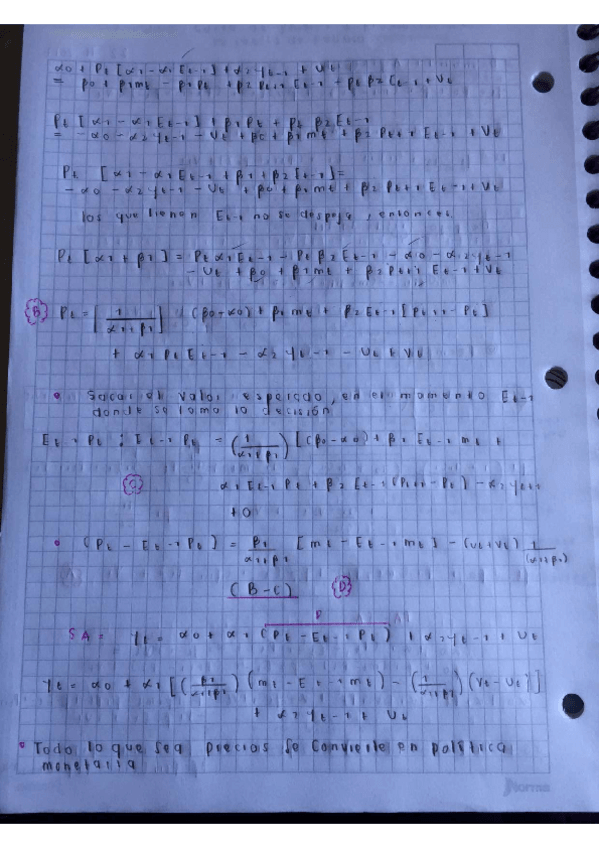 α0 + Pt [α1 - α1 Et-1] + α2 Yt-1 + Ut
= β0 + β1mt - β1Pt + β2 Pt+1 Et-1 - Pt β2 Et-1 + Vt
Pt [α1 - α1 Et-1] + β1Pt + Pt β2 Et-1
= -α0 - α2 Yt-1 - Ut + β0 + β1mt + β2 Pt+1 Et-1 + Vt
Pt [α1 - α1 Et-1 + β1 + β2 Et-1] =
-α0 - α2 Yt-1 - Ut + β0 + β1 mt + β2 Pt+1 Et-1 + Vt
los que tienen Et-1 no se despeja, entonces
Pt [α1 + β1] = Pt α1 Et-1 - Pt β2 Et-1 - α0 - α2 Yt-1
- Ut + β0 + β1mt + β2 Pt+1 Et-1 + Vt
(B) Pt = [1 / α1+β1] (β0-α0) + β1 mt + β2 Et-1 [Pt+1 - Pt]
+ α1 Pt Et-1 - α2 Yt-1 - Ut + Vt
• Sacar el valor esperado, en el momento Et-1
donde se toma la decisión
Et-1 Pt : Et-1 Pt = (1 / α1+β1) [(β0-α0) + β1 Et-1 mt +
(C) α1 Et-1 Pt + β2 Et-1 (Pt+1 - Pt) - α2 Yt-1
+0
• (Pt - Et-1 Pt) = β1 / α1+β1 [mt - Et-1 mt] - (Ut+Vt) 1 / (α1+β1)
(B-C) (D)
D
SA = Yt = α0 + α1 (Pt - Et-1 Pt) + α2 Yt-1 + Ut
Yt = α0 + α1 [(β1 / α1+β1) (mt - Et-1 mt) - (1 / α1+β1) (Vt - Ut)]
+ α2 Yt-1 + Ut
• Todo lo que sea precios se convierte en política
monetaria
Norma